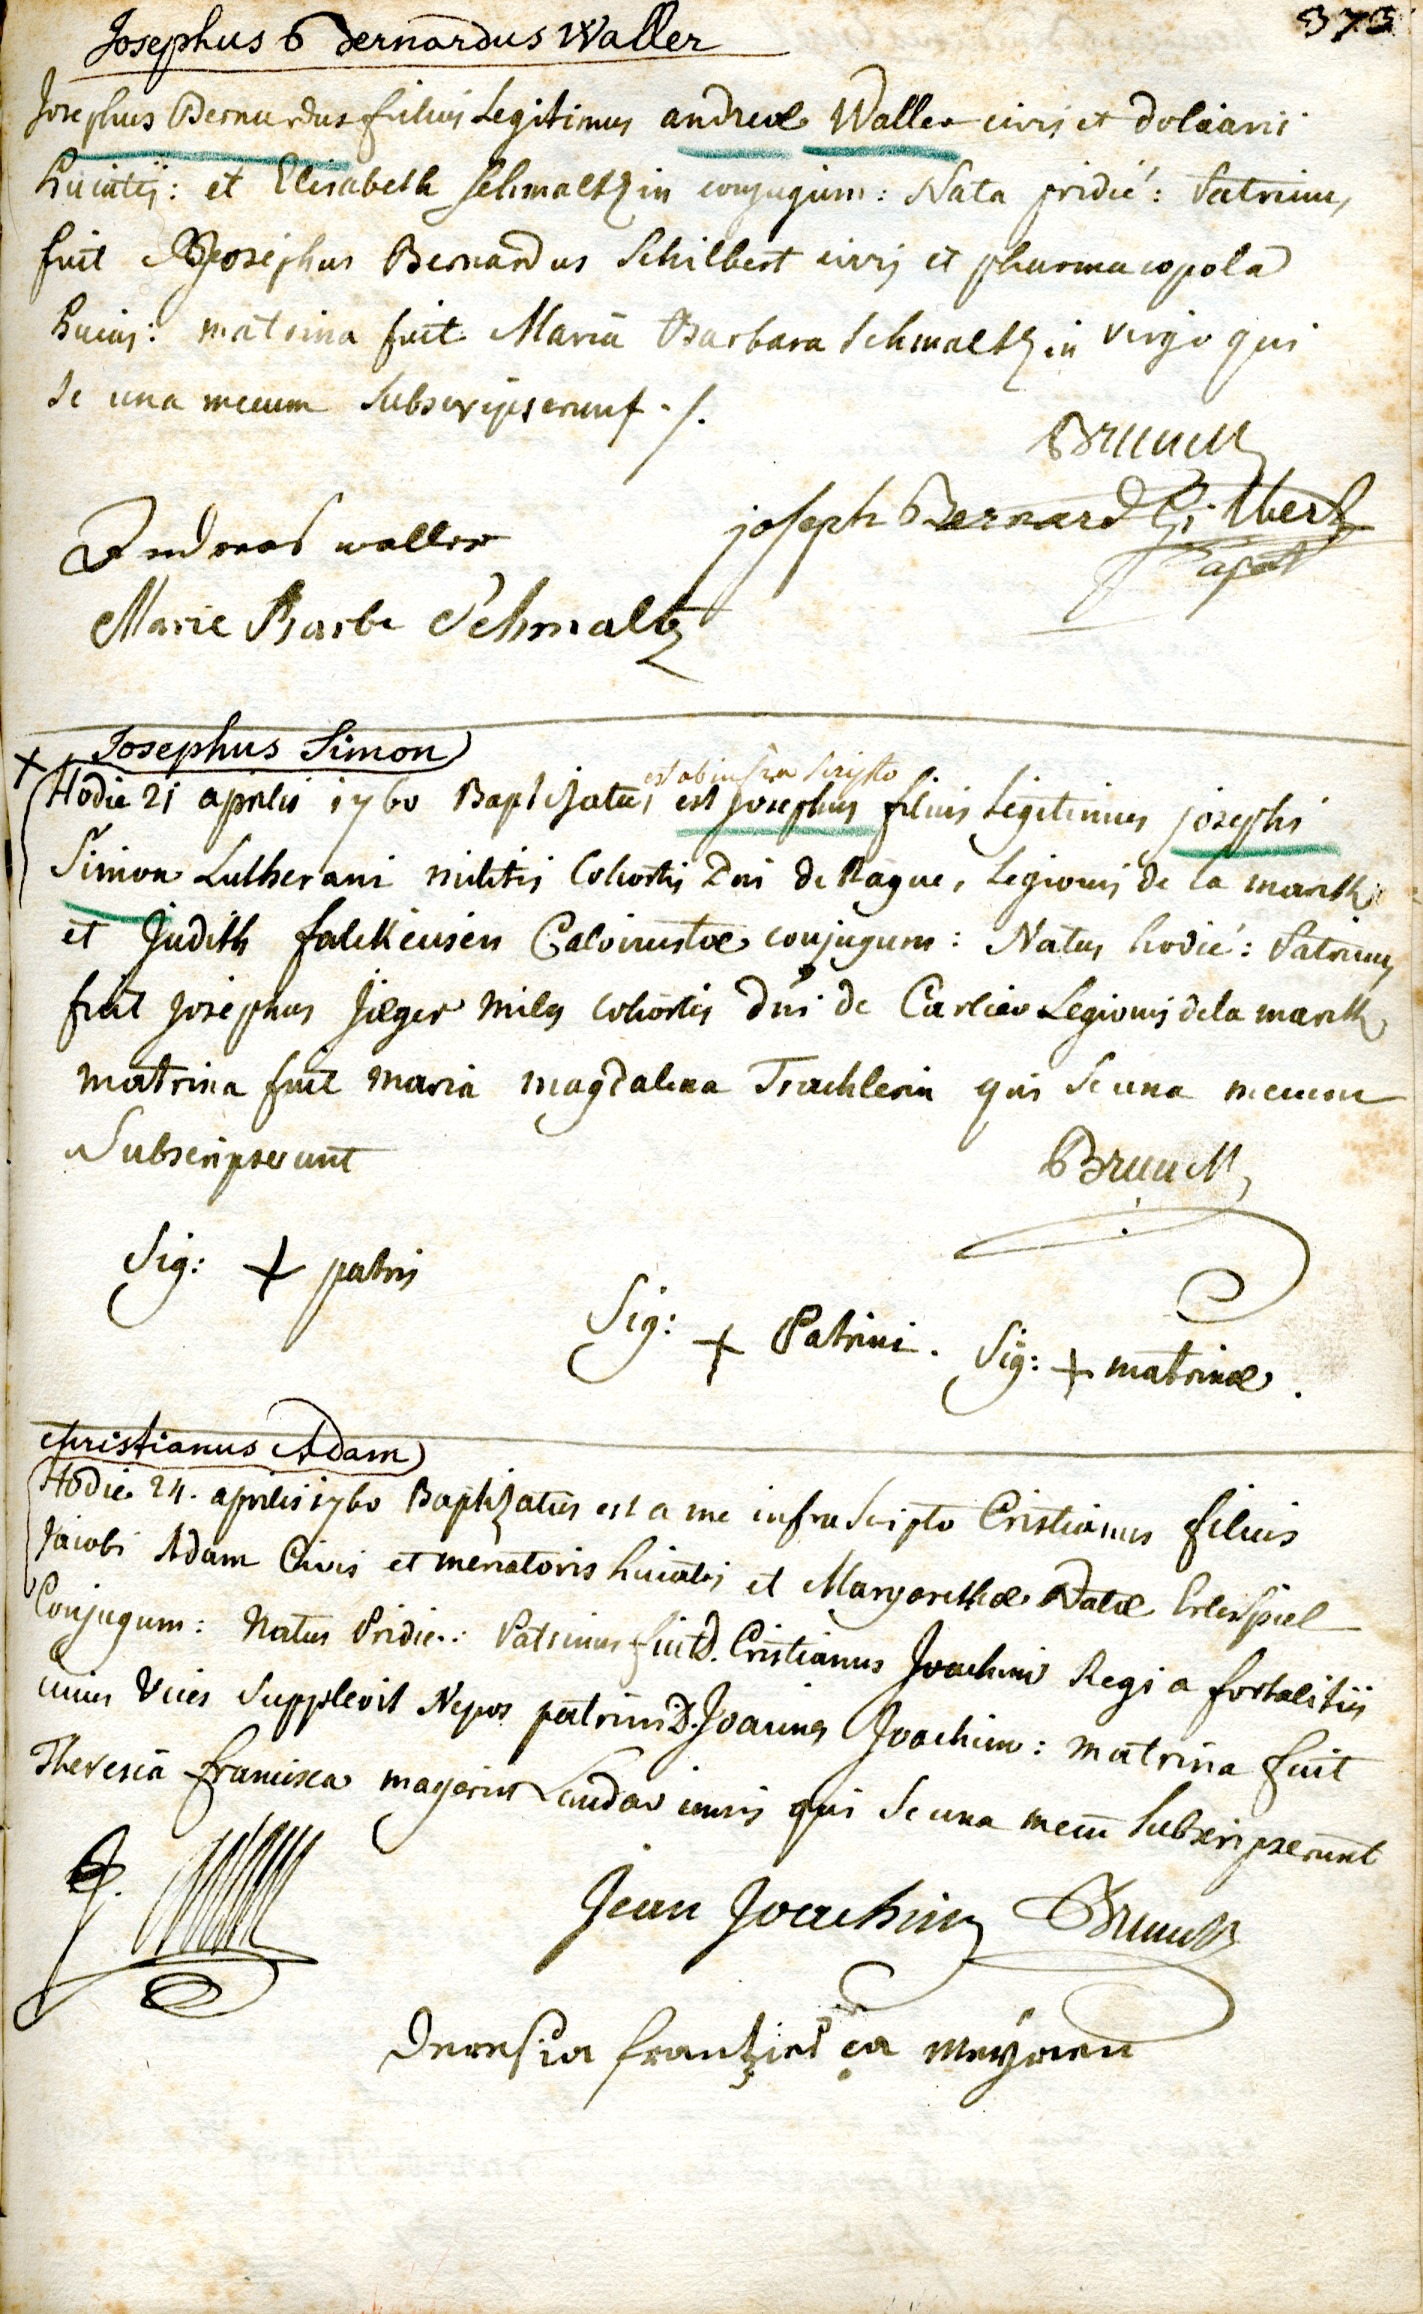 373
Josephus Bernardus Waller
Josephus Bernardus filius Legitimus andreæ Waller civis et doliarii
huiatis: et Elisabeth Schmaltzin conjugum: Nata pridie: Patrinus
fuit Josephus Bernardus Schilbert civis et pharmacopola
huias: matrina fuit Maria Barbara Schmaltzin virgo qui
se una mecum Subscripserunt ./.
Brunck
Andreas waller
joseph Bernard Gilbert
apot
Marie Barbe Schmaltz
Josephus Simon
est ab infra scripto
Hodie 21 aprilis 1760 Baptizatus est josephus filius Legitimus josephi
Simon Lutherani militis Cohortis Dni de Rague, Legionis de la marck
et Judith falckeisen Calvinistæ conjugum: Natus hodie: Patrinus
fuit josephus jæger miles cohortis dni de Carlier Legionis de la marck
matrina fuit maria magdalena Trachlerin qui se una mecum
Subscripserunt
Brunck
Sig: + patris
Sig: + Patrini. Sig: + matrinæ.
christianus Adam
Hodie 24. aprilis 1760 Baptizatus est a me infra Scripto Cristianus filius
Jacobi Adam Civis et mercatoris huiatis et Margarethæ Natæ
Conjugum: Natus Pridie: Patrinus fuit D. Cristianus Joachim Regi a fortalitiis
cuius Vices Supplevit Nepos patrini D. Joannes Joachim: matrina fuit
Theresia francisca mayerin Landav iensis qui se una mecu Subscripserunt
Jean Joachim
Brunck
Deresia frantzisca meyren